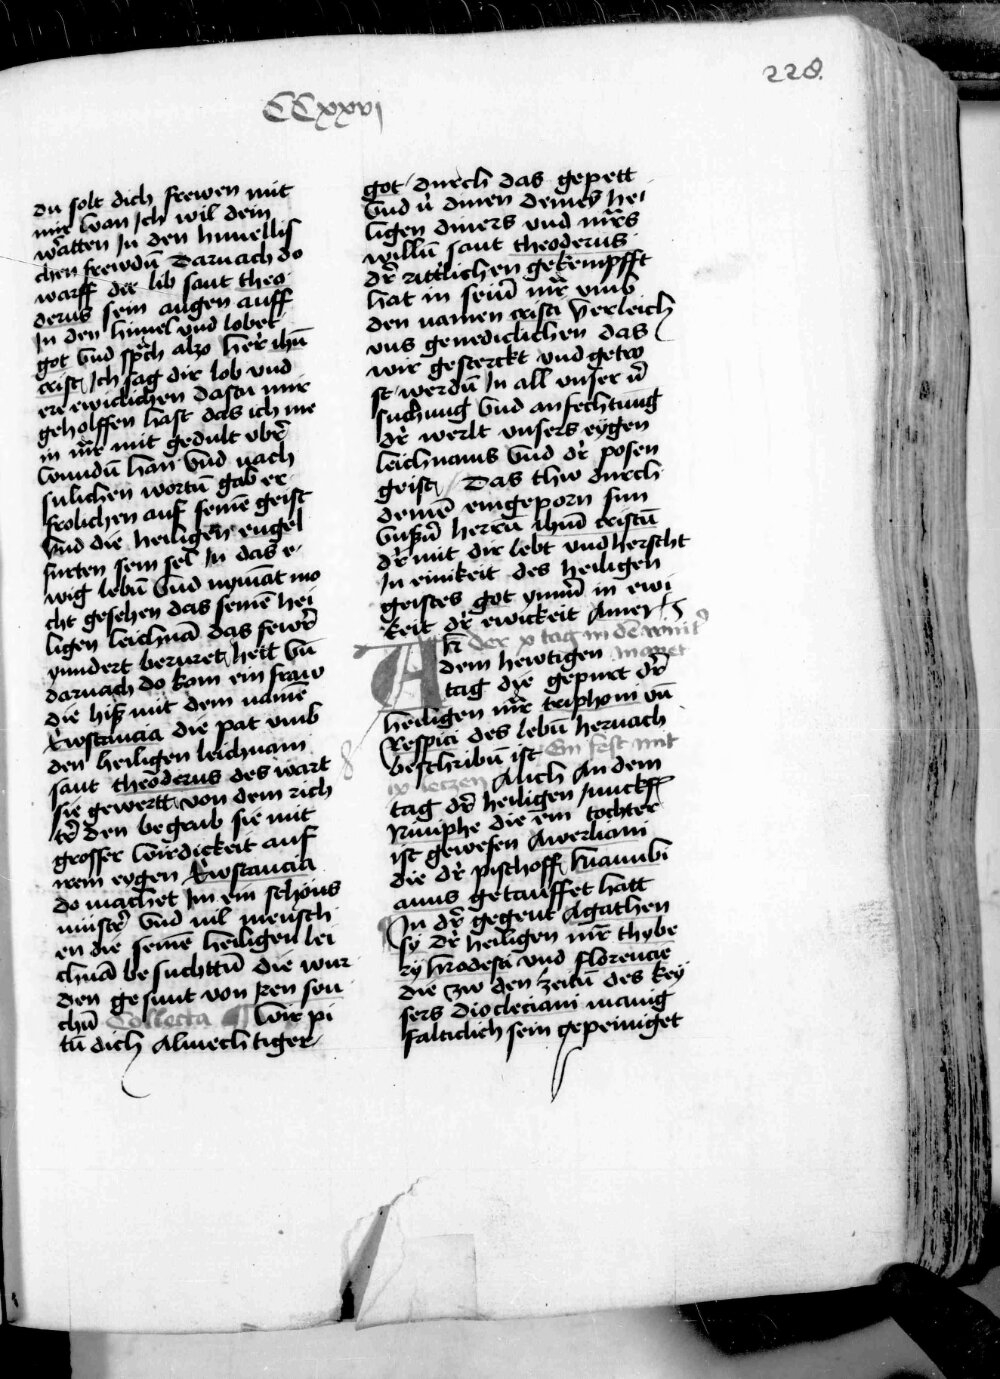 228.
CCxxvi
du solt dich frewen mit
mir wan Ich wil dein
warten In den himellis
chen frewdn̄ Darnach do
warff der lib sant theo
derus sein augen auff
In den himel vnd lobet
got vnd sprach also her ihū
crist Ich sag dir lob vnd
ere ewiclichen dastu mir
geholffen hast das ich me
in mr̄ mit gedult vbr̄
wundn̄ han vnd nach
sulichen wortn̄ gab er
frolichen auf seinē geist
vnd die heiligen engel
furten sein sel In das e
wig lebn̄ vnd nymāt mo
cht gesehen das seinē hei
ligen leichnā das fewr̄
ynndert beruret hett vn̄
darnach do kom ein fraw
die hiß mit dem namē
Eustancia die pat vmb
den heiligen leichnam
sant theoderus des wart
sie gewertt von dem rich
tr̄ den begrub sie mit
grosser wirdickeit auf
irem eygen Eustancia
do machet Im ein schons
munstr̄ vnd vil mensch
en die seinē heiligen lei
chnā besuchttn̄ die wur
den gesunt von iren seu
chn̄ Collecta Wir pi
tn̄ dich Almechtiger
got durch das gepett
vnd v̄ dinen deines hei
ligen diners vnd mr̄s
willn̄ sant theoderus
dr̄ ritterlichen gekempfft
hat in seinr̄ mr̄ vmb
den namen cristi Verleich
vns genediclichen das
wir gesterckt vnd getro
st werdn̄ In all vnser v̄
suchung vnd anfechtung
dr̄ werlt vnsers eygen
leichnams vnd dr̄ posen
geist Das thw durch
deinē eingeporn sun
vnsern̄ herrn̄ ihm̄ cristū
dr̄ mit dir lebt vnd herscht
In einikeit des heiligen
geistes got ymm̄ in ewi
keit dr̄ ewickeit Amen
An der x tag in dē wint̄
dem hewtigen manet
tag die gepurt dr̄
heiligen mr̄ triphoni vn̄
Respici des lebn̄ hernach
beschribn̄ ist Ein fest mit
ix leczen Auch An dem
tag dr̄ heiligen Junckfr̄
Nimphe die ein tochter
ist gewesen Awerliani
die dr̄ pischoff Mamili
anus getauffet hatt
In dr̄ gegent Agathen
sy dr̄ heiligen mr̄ thybe
ry Modesti vnd florencie
die zw den zeitn̄ des key
sers Diocleciani manig
falticlich sein gepeiniget